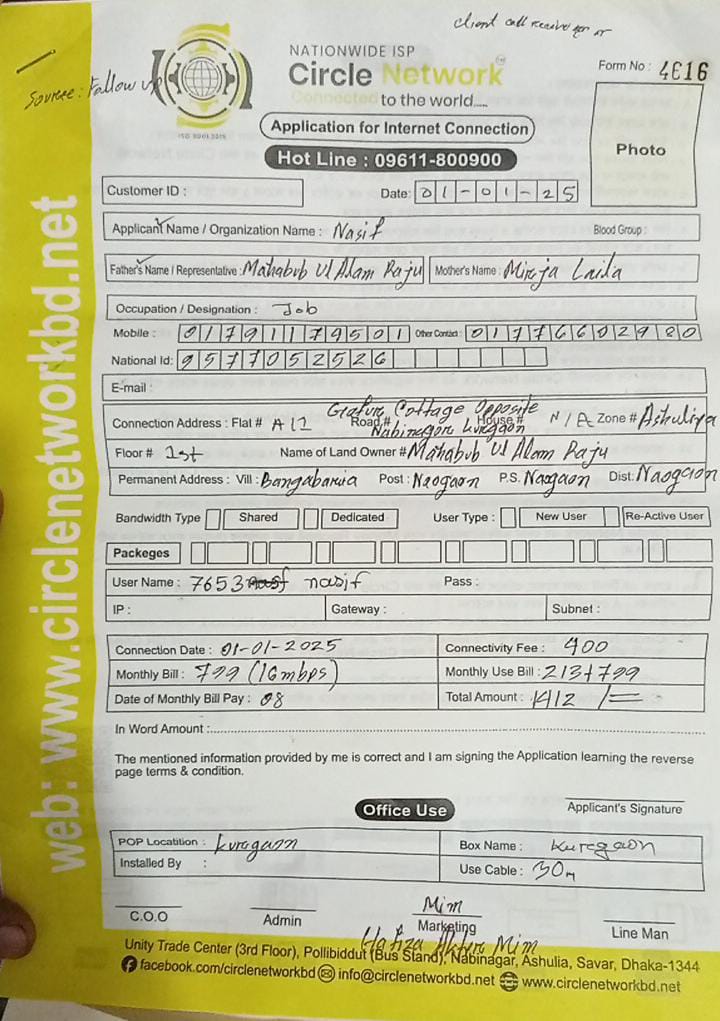 client call receive
Source : Follow up
NATIONWIDE ISP
Circle Network
Connected to the world.....
ISO 9001:2015
Form No : 4616
Application for Internet Connection
Hot Line : 09611-800900
Photo
Customer ID :
Date: 01-01-25
Applicant Name / Organization Name : Nasif
Blood Group :
Father's Name / Representative : Mahabub Ul Alam Raju
Mother's Name : Mirja Laila
Occupation / Designation : Job
Mobile : 01791179501 Other Contact : 01776602980
National Id: 9577052526
E-mail :
Connection Address : Flat # A12 Road # House # N/A Zone # Ashuliya
Cottage Opposite
Nabinagor Kurgaon
Floor # 1st Name of Land Owner # Mahabub Ul Alam Raju
Permanent Address : Vill : Bangabaria Post : Naogaon P.S. Naogaon Dist: Naogaon
Bandwidth Type Shared Dedicated User Type : New User Re-Active User
Packeges
User Name : 7653 nasif Pass :
IP : Gateway : Subnet :
Connection Date : 01-01-2025 Connectivity Fee : 400
Monthly Bill : 799 (16mbps) Monthly Use Bill : 213+799
Date of Monthly Bill Pay : 08 Total Amount : 1412/=
In Word Amount :
The mentioned information provided by me is correct and I am signing the Application learning the reverse
page terms & condition.
Applicant's Signature
Office Use
POP Locatition : Kuregaon Box Name : Kuregaon
Installed By : Use Cable : 30m
Mim
C.O.O Admin Marketing Line Man
Hafiza Akter Mim
Unity Trade Center (3rd Floor), Pollibiddut (Bus Stand), Nabinagar, Ashulia, Savar, Dhaka-1344
facebook.com/circlenetworkbd info@circlenetworkbd.net www.circlenetworkbd.net
web: www.circlenetworkbd.net